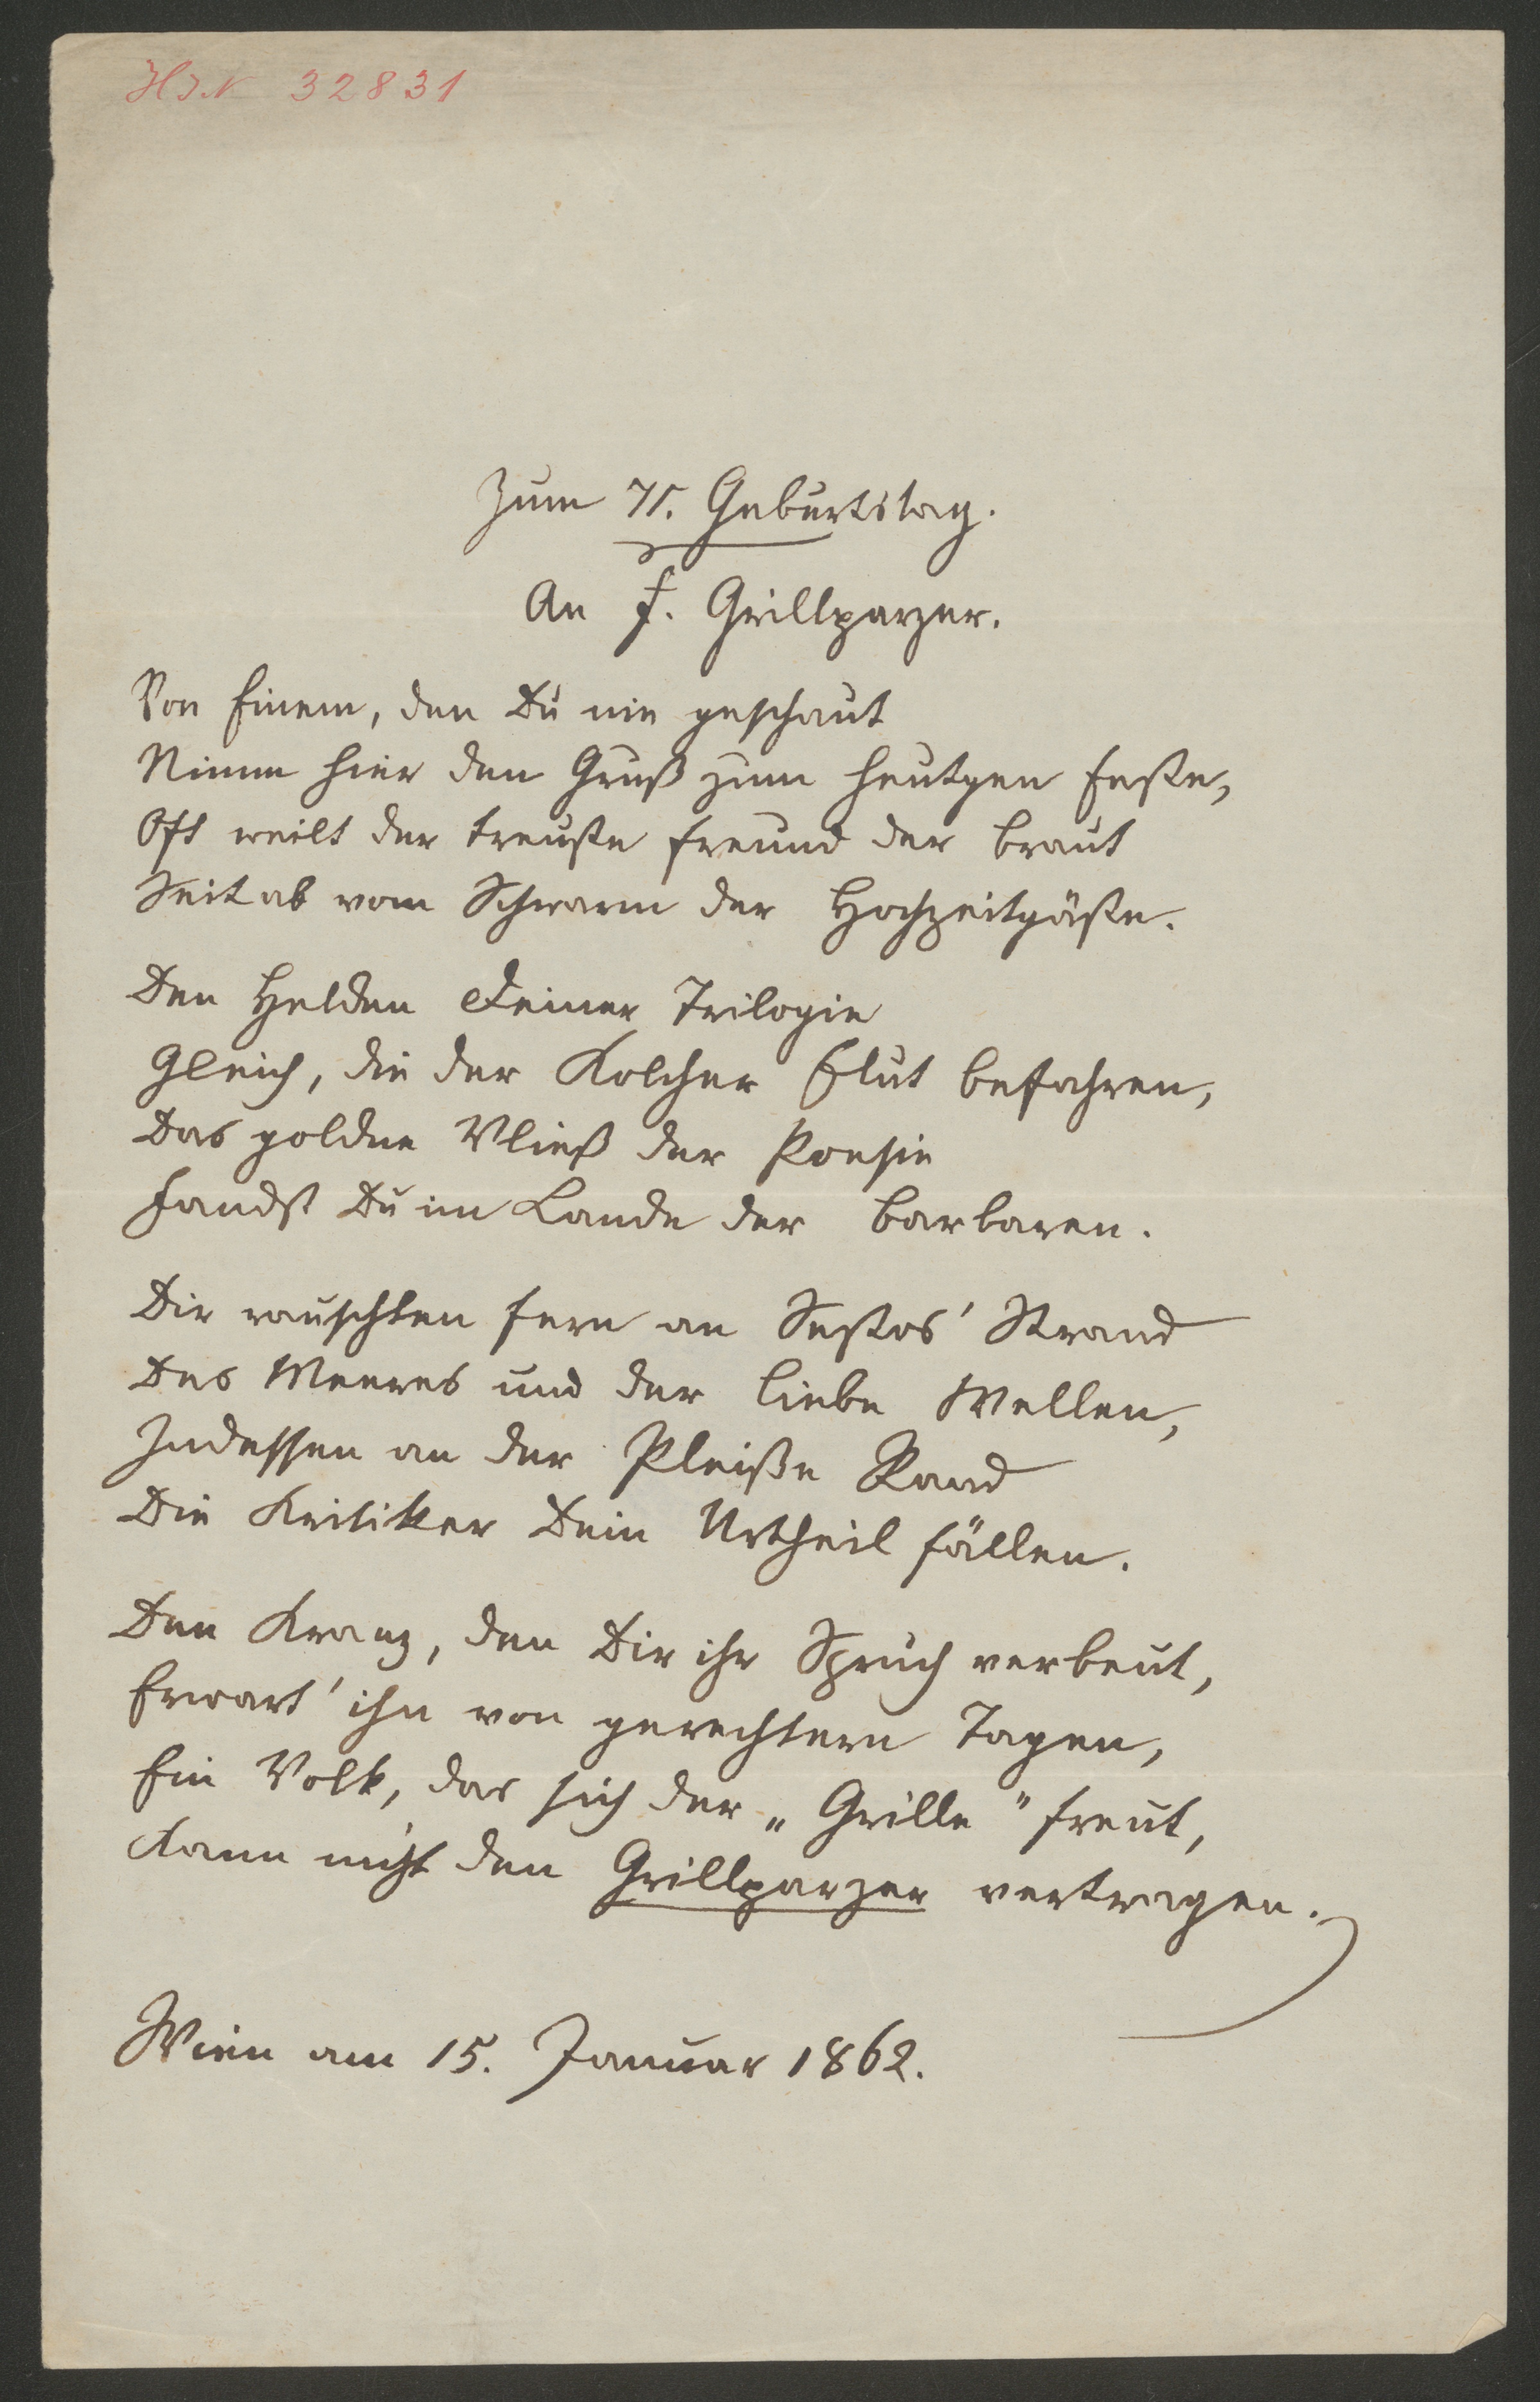 HIN 32831
Zum 71. Geburtstag.
An F. Grillparzer.
Von Einem, den Du nie geschaut
Nimm hier den Gruß zum heutgen Feste,
Oft weilt der treuste Freund der Braut
Seitab vom Schwarm der Hochzeitgäste.
Den Helden Deiner Trilogie
Gleich, die der Kolcher Flut befahren,
Das goldne Vließ der Poesie
Fandst Du im Lande der Barbaren.
Dir rauschten fern an Sestos' Strand
Des Meeres und der Liebe Wellen,
Indessen an der Pleiße Rand
Die Kritiker Dein Urtheil fällen.
Den Kranz, den Dir ihr Spruch verbeut,
Erwart' ihn von gerechtern Tagen,
Ein Volk, das sich der „Grille" freut,
Kann nicht den Grillparzer vertragen.
Wien am 15. Januar 1862.